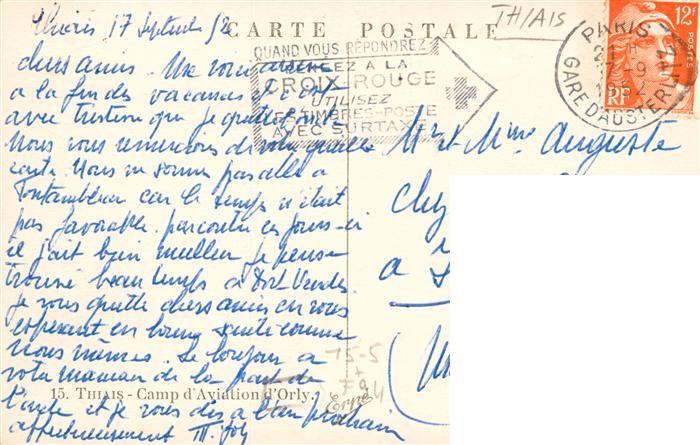 Thiais 17 Septembre 52
CARTE POSTALE
TH/AIS
12F
POSTES
RF
PARIS
GARE D'AUSTERLITZ
QUAND VOUS RÉPONDREZ
PENSEZ A LA
CROIX-ROUGE
UTILISEZ
LES TIMBRES-POSTE
AVEC SURTAXE
chers amis. Me voici
a la fin des vacances et c'est
avec tristesse que je quitte
Nous vous remercions de votre
carte. Nous ne sommes pas allés a
Fontainebleau car le temps n'était
pas favorable. par contre ces jours-ci
il fait bien meilleur je pense
trouvé beau temps a Port Vendres
je vous quitte chers amis en vous
espérant en bonne santé comme
nous mêmes. Le bonjour a
votre maman de la part de
l'oncle et je vous dis a bientôt
affectueusement
Mr et Mme Auguste
chez
a
15. THIAIS - Camp d'Aviation d'Orly.
15-5